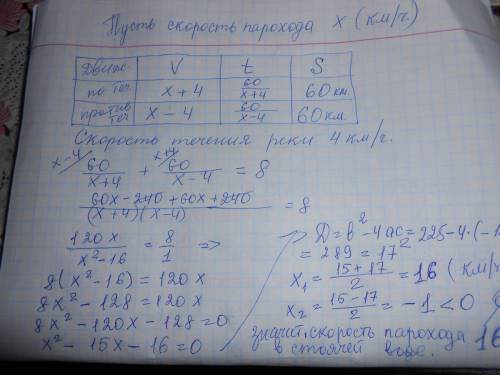 Пусть скорость парохода x (км/ч.
Движ. V t S
по теч. x+4 60/(x+4) 60 км.
против теч x-4 60/(x-4) 60 км.
Скорость течения реки 4 км/ч.
x-4/ 60/(x+4) + x+4/ 60/(x-4) = 8
(60x-240+60x+240)/((x+4)(x-4)) = 8
120x/(x²-16) = 8/1 =>
8(x²-16)=120x
8x²-128=120x
8x²-120x-128=0
x²-15x-16=0
D=b²-4ac=225-4·(-1
=289=17²
x₁=(15+17)/2=16 (км/ч
x₂=(15-17)/2=-1<0
значит, скорость парохода 16
в стоячей воде.